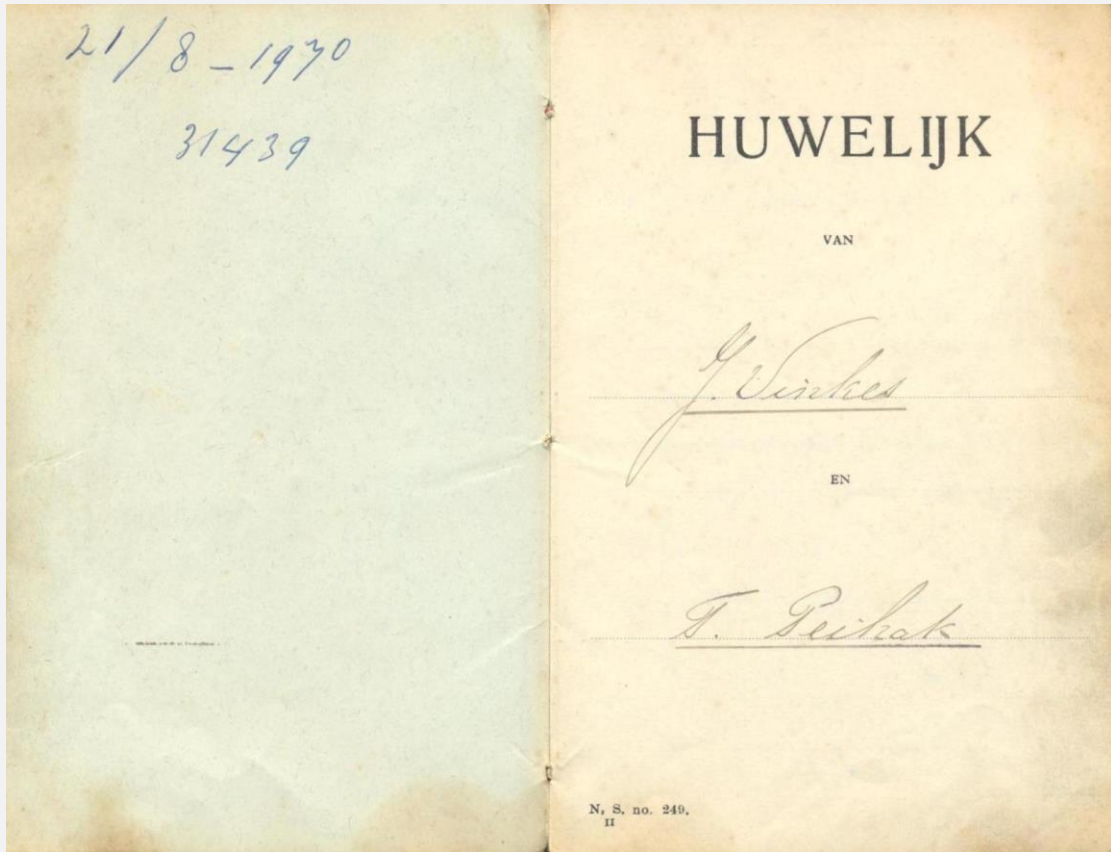 21/8-1970
31439
HUWELIJK
VAN
J. Vinkes
EN
T. Peihak
N. S. no. 249.
II